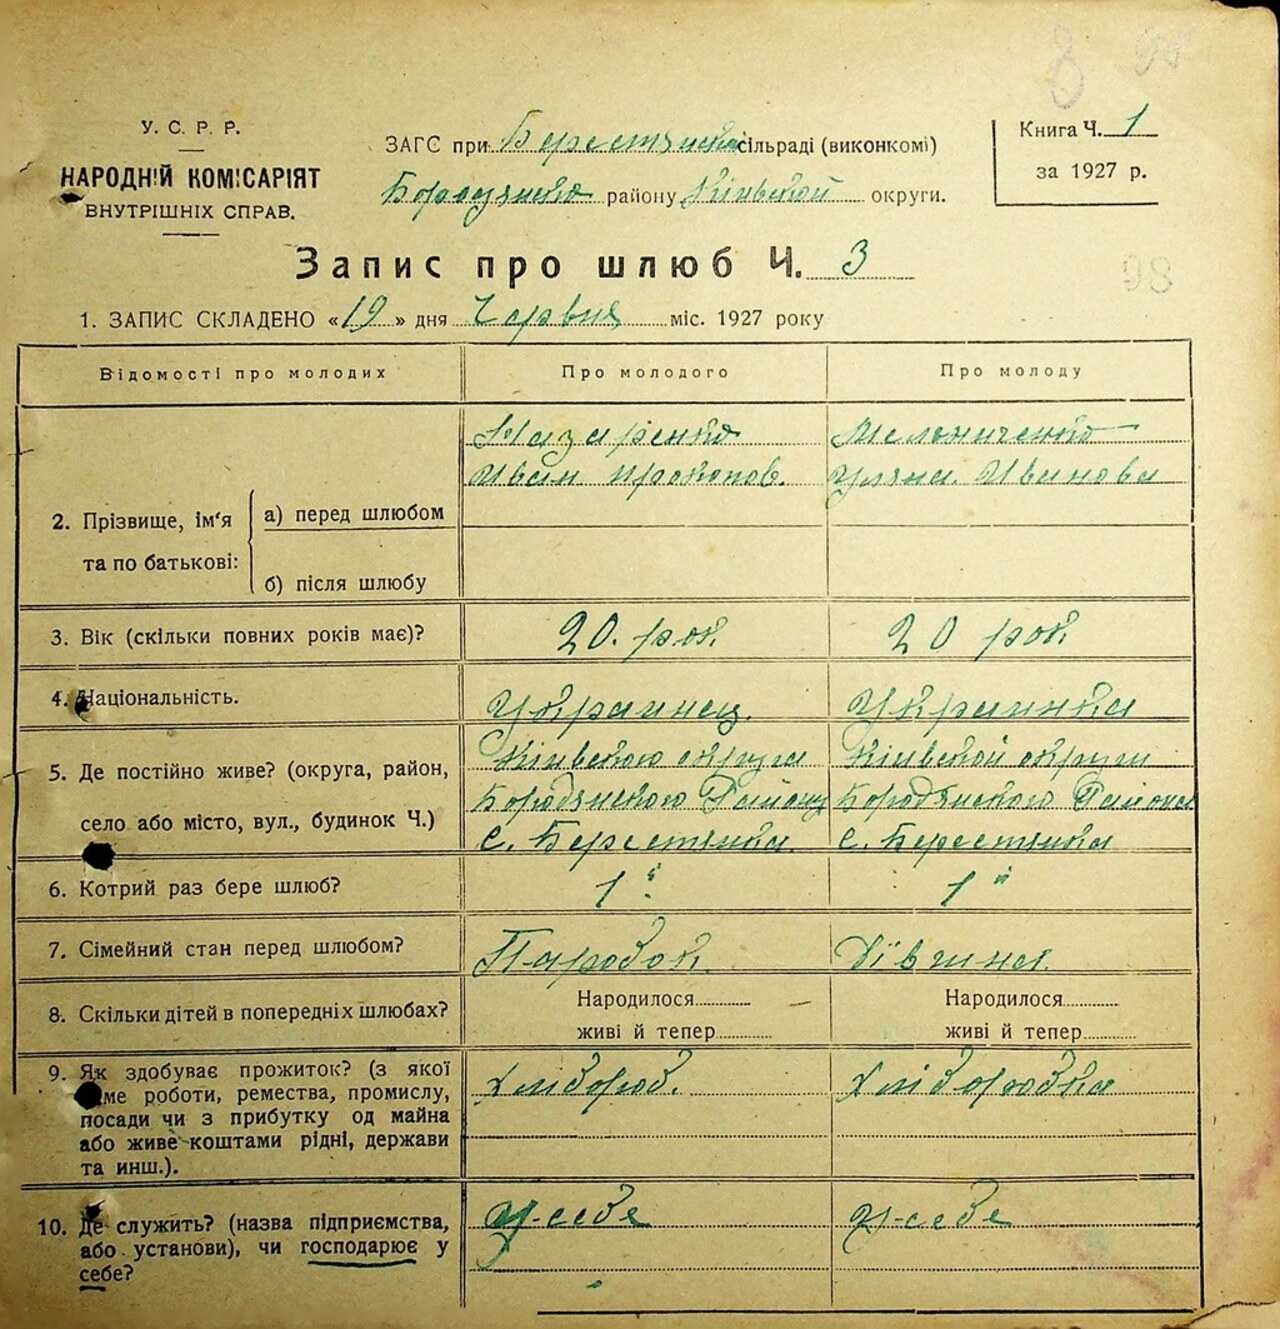 У. С. Р. Р.
НАРОДНІЙ КОМІСАРІЯТ
ВНУТРІШНІХ СПРАВ.
ЗАГС при Берестянській сільраді (виконкомі)
Бородянско району Київской округи.
Книга Ч. 1
за 1927 р.
Запис про шлюб Ч. 3
98
1. ЗАПИС СКЛАДЕНО «19» дня Червня міс. 1927 року
Відомості про молодих Про молодого Про молоду
2. Прізвище, ім'я та по батькові:
а) перед шлюбом
Назаренко
Иван Прокопов.
Мельниченко
Уляна Иванова
б) після шлюбу
3. Вік (скільки повних років має)? 20. рок. 20 рок.
4. Національність. Украинец. Украинка
5. Де постійно живе? (округа, район,
село або місто, вул., будинок Ч.)
Київского округа
Бородянского Району
С. Берестянка.
Київской округи
Бородянского Района
С. Берестянка
6. Котрий раз бере шлюб? 1 1
7. Сімейний стан перед шлюбом? Паробок. Дівчина.
8. Скільки дітей в попередніх шлюбах?
Народилося
живі й тепер
Народилося
живі й тепер
9. Як здобуває прожиток? (з якої
саме роботи, ремества, промислу,
посади чи з прибутку од майна
або живе коштами рідні, держави
та инш.).
Хлібороб.
Хліборобка
10. Де служить? (назва підприємства,
або установи), чи господарює у
себе?
У-себе
У-себе